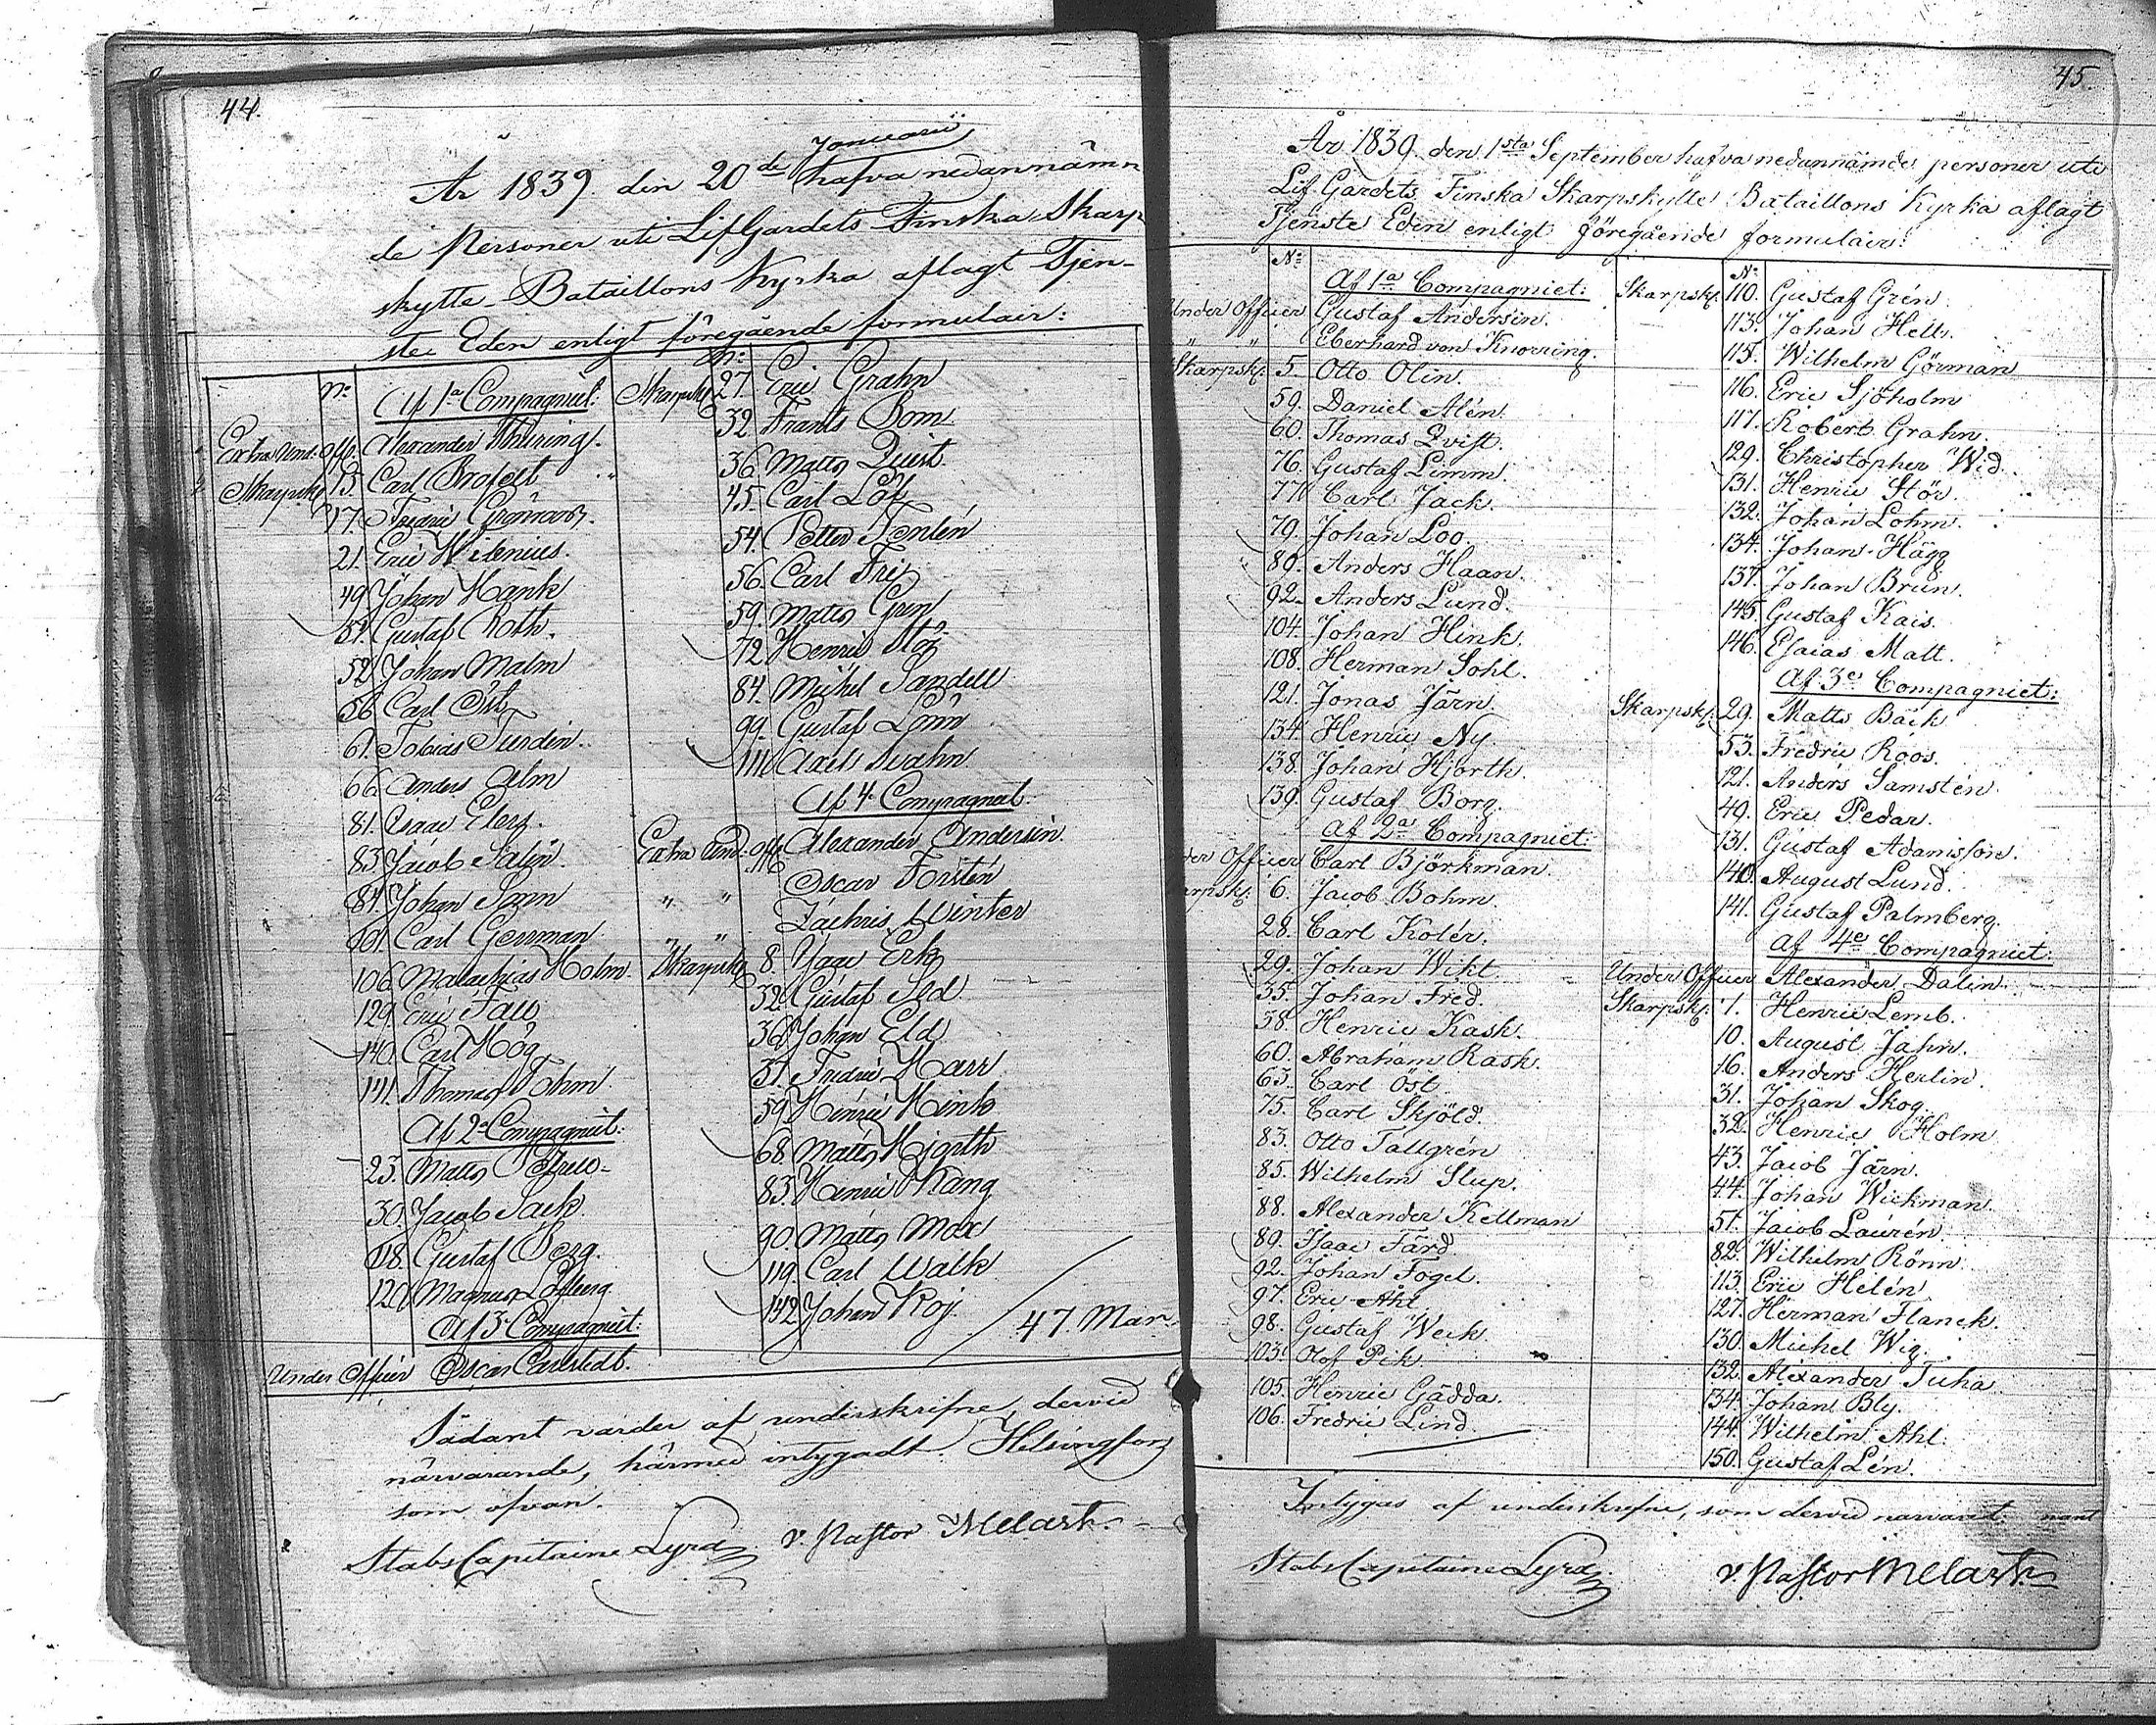 44.
År 1839 den 20de Januarii hafva nedannämn
de Personer uti LifGardets Finska Skarp
skytte-Bataillons Kyrka aflagt Tjen-
ste Eden enligt föregående formulair:
No
Af 1a Compagniet:
Extra Und. Off. Alexander Thuring.
Skarpsk. 15. Carl Brofelt
17. Fredric Grönroos.
21. Eric Milenius.
49. Johan Hank
51. Gustaf Roth.
52. Johan Malm
56. Carl Öst
61. Tobias Turdin.
66. Anders Alm
81. Isaac Elers.
83. Jacob Salin.
84. Johan Sarn
101. Carl German.
106. Malachias Holm.
129. Eric Falo
140. Carl Hög
141. Thomas Fohm
Af 2a Compagniet:
23. Matts
30. Jacob Sack
118. Gustaf Berg.
120. Magnus Löfberg
Af 3e Compagniet:
Under Officier Oscar Carlstedt.
No
Skarpsk 27. Eric Grahn
32. Frants Bom
36. Matts Quist.
45. Carl Löf
54. Petter Fonlén
56. Carl Fri
59. Matts Gren
72. Henric Stog
84. Michel Sandell
99. Gustaf Lönn
111. Axel Svahn
Af 4e Compagniet:
Extra Und. Off. Alexander Andersin.
" " Oscar Forstén
" " Zachris Winter
Skarpsk 8. Isaac Erk
32. Gustaf Sld
36. Johan Eld
37. Fredric Harr
59. Henric Hink
68. Matts Hjorth
83. Henric Mang
90. Matts Max
119. Carl Walk
142. Johan Koj
47. Man
Sådant varder af underskrifne, dervid
närvarande, härmed intygadt. Helsingfors
som ofvan.
StabsCapitaine Lyra v. Pastor Melart.
45.
År 1839. den 1sta September hafva nedannämde personer uti
Lif Gardets Finska Skarpskytte Bataillons Kyrka aflagt
Tjenste Eden enligt föregående formulair:
No
Af 1a Compagniet:
Under Officier Gustaf Andersin.
" " Eberhard von Knorring.
Skarpsk: 5. Otto Olin.
59. Daniel Alén.
60. Thomas Qvist.
76. Gustaf Limm.
77. Carl Jack.
79. Johan Loo.
80. Anders Haan.
92. Anders Lund.
104. Johan Hink.
108. Herman Sohl.
121. Jonas Järn.
134. Henric Ny.
138. Johan Hjorth.
139. Gustaf Borg.
Af 2a Compagniet:
der Officier Carl Björkman.
arpsk: 6. Jacob Bohm.
28. Carl Kolér.
29. Johan Wikt
35. Johan Fred.
38. Henric Kask.
60. Abraham Rask.
63. Carl Öst.
75. Carl Skjöld.
83. Otto Tallgrén
85. Wilhelm Slup.
88. Alexander Kellman
89. Isaac Färd
92. Johan Fogel.
97. Eric Ahl
98. Gustaf Weck.
103. Olof Pik
105. Henric Gädda.
106. Fredric Lind.
No
Skarpsk: 110. Gustaf Grén.
113. Johan Hell.
115. Wilhelm Görman
116. Eric Sjöholm
117. Robert Grahn.
129. Christopher Wid.
131. Henric Stör.
132. Johan Lohm.
134. Johan Hägg
137. Johan Brun.
145. Gustaf Kais.
146. Esaias Malt.
Af 3e Compagniet:
Skarpsk: 29. Matts Bäck
53. Fredric Roos.
121. Anders Samstén
49. Eric Pedar.
131. Gustaf Adamsson.
140. August Lund.
141. Gustaf Palmberg.
Af 4e Compagniet:
Under Officier Alexander Dalin.
Skarpsk: 1. Henric Lemb.
10. August Jahn.
16. Anders Herlin.
31. Johan Skog
32. Henric Holm
43. Jacob Järn.
44. Johan Wickman.
51. Jacob Laurén
82. Wilhelm Rönn.
113. Eric Helén
127. Herman Flanck.
130. Michel Wig.
132. Alexander Tuha
134. Johan Bly.
144. Wilhelm Ahl.
150. Gustaf Lén.
Intygas af underskrefne, som dervid narvarit.
StabsCapitaine Lyra v. Pastor Melart.